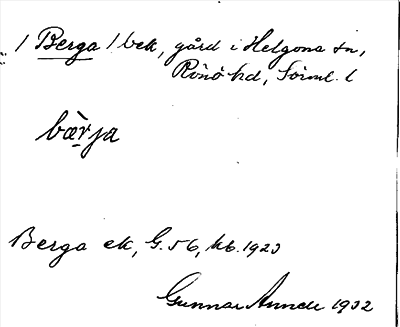 / Berga / bek, gård i Helgona sn,
Rönö hd, Sörml. l
bæ̀rja
Berga ek, G. 56, kb. 1923
Gunnar 1932